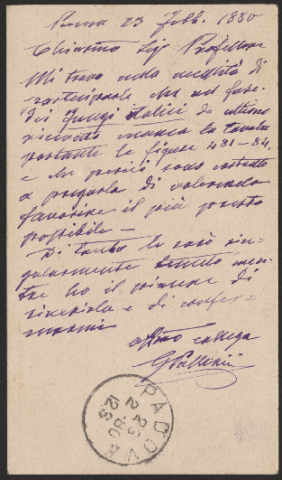 Parma 23 Febb. 1880
Chiarissimo Sig. Professore
Mi trovo nella necessità di
parteciparle che nel fasc.
dei funghi italici da ultimo
ricevuto manca la tavola
portante le figure 481-84,
e che perciò sono costretto
a pregarla di volermela
favorire il più presto
possibile —
Di tanto le sarò sin-
golarmente tenuto men-
tre ho il piacere di
riverirla e di confer-
marmi
collega
G Passerini
PADOVA
23
2
80
12 S